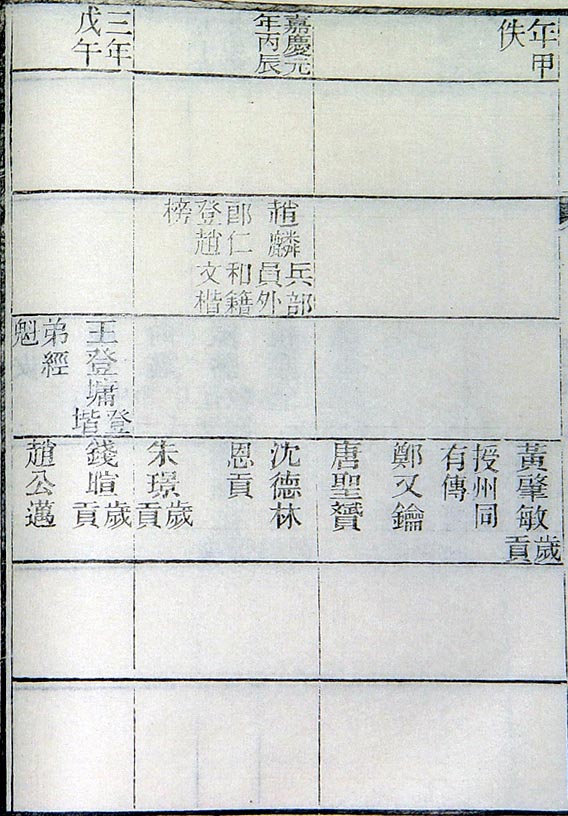 年甲
佚
嘉慶元
年丙辰
三年
戊午
趙麟兵部
員外
郎仁和籍
登趙文楷
榜
王登墉登
堦
弟經
魁
黃肇敏歲
貢
授州同
有傳
鄭文鑰
唐聖贇
沈德林
恩貢
朱璟歲
貢
錢暄歲
貢
趙公邁